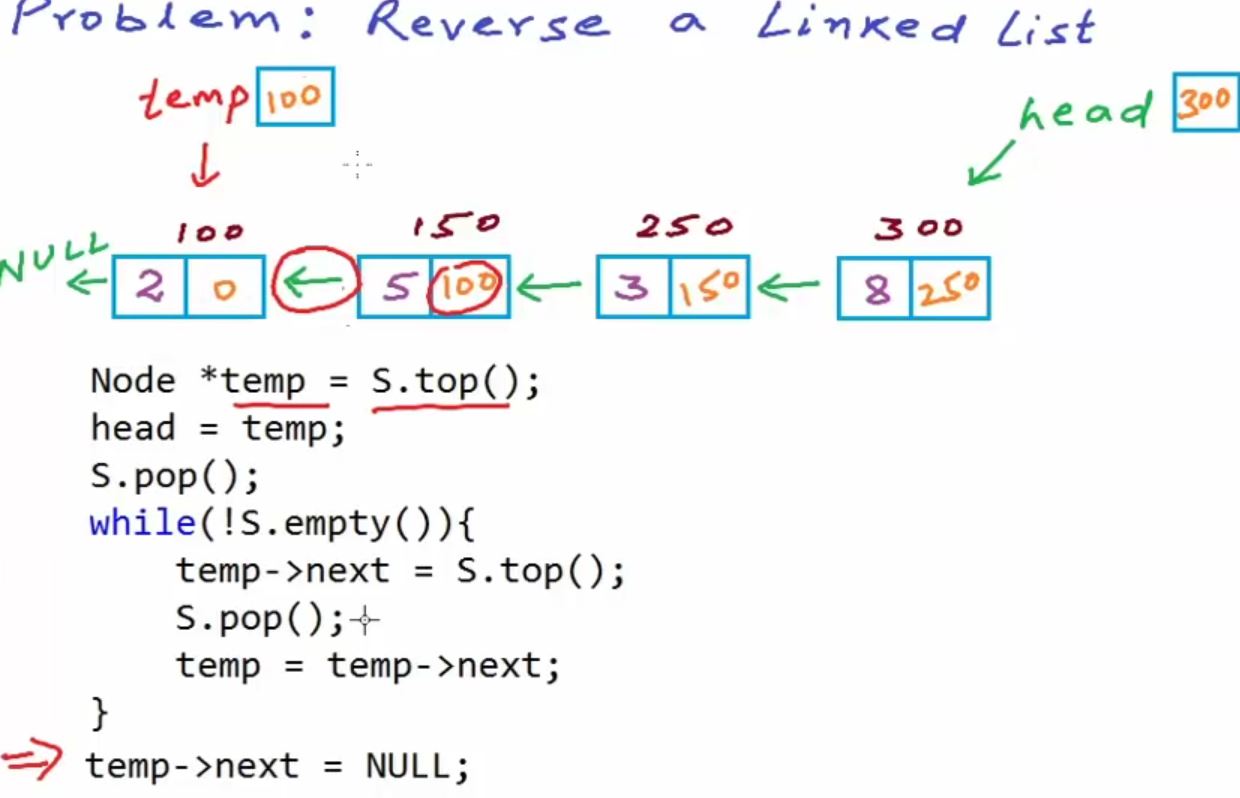 Problem: Reverse a Linked List
temp 100
head 300
100 150 250 300
NULL 2 0 5 100 3 150 8 250
Node *temp = S.top();
head = temp;
S.pop();
while(!S.empty()){
temp->next = S.top();
S.pop();
temp = temp->next;
}
temp->next = NULL;